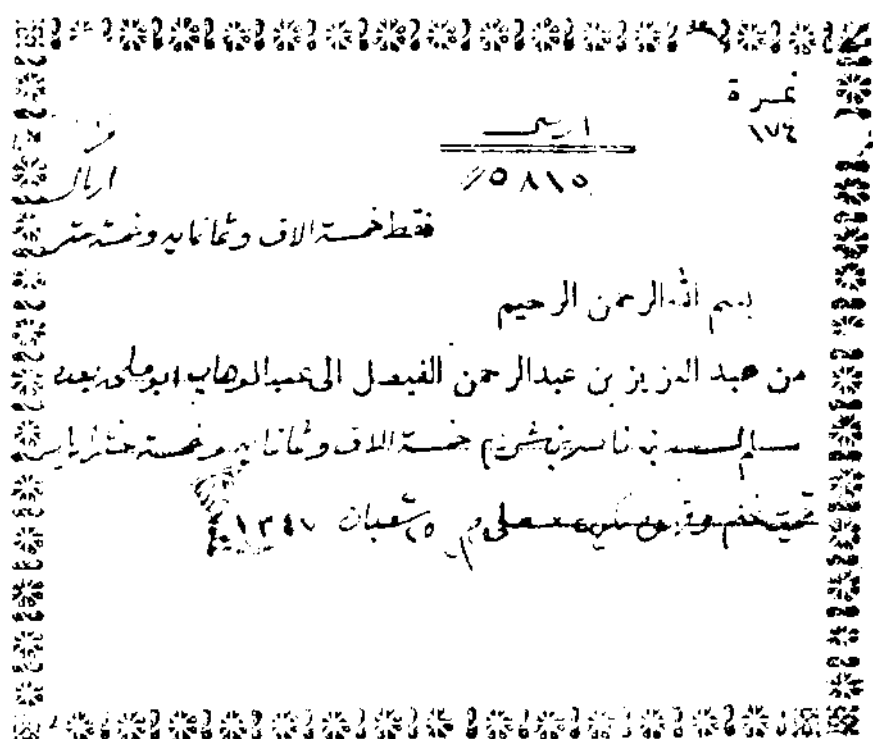 نمرة
١٧٤
٥٨١٥
اريال
فقط خمسة الاف وثمانمايه وخمسة عشر
بسم الله الرحمن الرحيم
من عبد العزيز بن عبدالرحمن الفيصل الى عبدالوهاب ابو ملحه بعده
سلم سعد بن ناصر خمسة الاف وثمانمايه وخمسة عشر
٢٥ شعبان ١٣٤٧